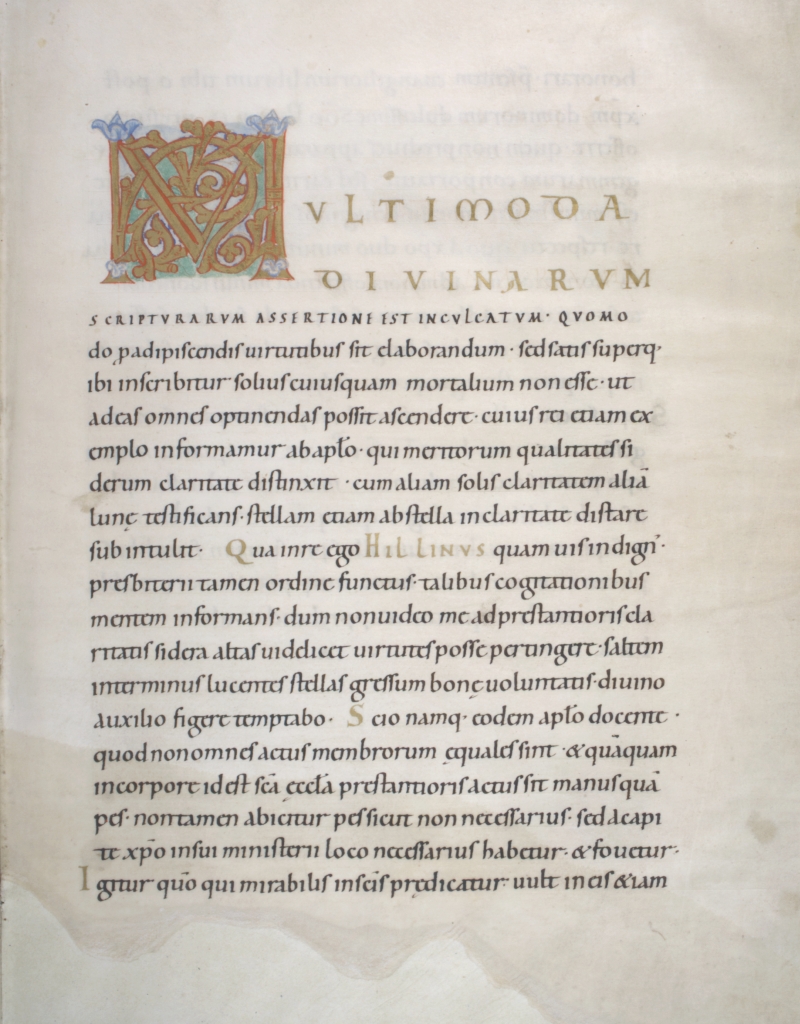 MVLTIMODA
DIVINARVM
SCRIPTVRARVM ASSERTIONE EST INCVLCATVM· QVOMO
do p adipiscendis uirtutibus sit elaborandum · sed satis superq·
ibi inscribitur solius cuiusquam mortalium non esse· ut
ad eas omnes optinendas possit ascendere· cuius rei etiam ex
emplo informamur ab apło· qui meritorum qualitates si
derum claritate distinxit · cum aliam solis claritatem aliā
lunę testificans· stellam etiam ab stella in claritate distare
subintulit· Qua in re ego HILLINVS quam uis indign᾽·
presbiterii tamen ordine functus· talibus cogitationibus
mentem informans· dum non uideo me ad prestantioris cla
ritatis sidera altas uidelicet uirtutes posse pertingere· saltem
inter minus lucentes stellas gressum bonę uoluntatis· diuino
auxilio figere temptabo· Scio namq· eodem apło docente ·
quod non omnes actus membrorum ęquales sint · & quāquam
in corpore id est scā ęccłā prestantioris actus sit manus quā
pes· non tamen abicitur pes sicut non necessarius· sed a capi
te xp̄o in sui ministerii loco necessarius habetur· & fouetur·
Igitur quō qui mirabilis in scīs prędicatur· uult in eis & iam